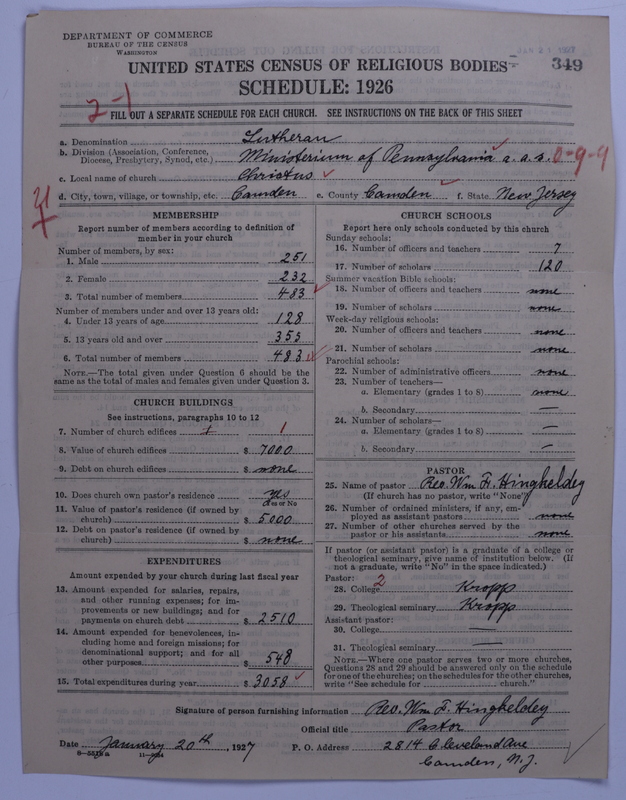 DEPARTMENT OF COMMERCE
BUREAU OF THE CENSUS
WASHINGTON
JAN 21 1927
UNITED STATES CENSUS OF RELIGIOUS BODIES 349
SCHEDULE: 1926
2-1
FILL OUT A SEPARATE SCHEDULE FOR EACH CHURCH. SEE INSTRUCTIONS ON THE BACK OF THIS SHEET
a. Denomination Lutheran
b. Division (Association, Conference, Diocese, Presbytery, Synod, etc.) Ministerium of Pennsylvania a. a. s. 0-9-9
c. Local name of church Christus
d. City, town, village, or township, etc. Camden e. County Camden f. State New Jersey
MEMBERSHIP
Report number of members according to definition of
member in your church
Number of members, by sex:
1. Male 251
2. Female 232
3. Total number of members 483
Number of members under and over 13 years old:
4. Under 13 years of age 128
5. 13 years old and over 355
6. Total number of members 483
NOTE.—The total given under Question 6 should be the
same as the total of males and females given under Question 3.
CHURCH BUILDINGS
See instructions, paragraphs 10 to 12
7. Number of church edifices 1 1
8. Value of church edifices $ 7000
9. Debt on church edifices $ none
10. Does church own pastor's residence yes
Yes or No
11. Value of pastor's residence (if owned by
church) $ 5000
12. Debt on pastor's residence (if owned by
church) $ none
EXPENDITURES
Amount expended by your church during last fiscal year
13. Amount expended for salaries, repairs,
and other running expenses; for im-
provements or new buildings; and for
payments on church debt $ 2510
14. Amount expended for benevolences, in-
cluding home and foreign missions; for
denominational support; and for all
other purposes $ 548
15. Total expenditures during year $ 3058
CHURCH SCHOOLS
Report here only schools conducted by this church
Sunday schools:
16. Number of officers and teachers 7
17. Number of scholars 120
Summer vacation Bible schools:
18. Number of officers and teachers none
19. Number of scholars none
Week-day religious schools:
20. Number of officers and teachers none
21. Number of scholars none
Parochial schools:
22. Number of administrative officers none
23. Number of teachers—
a. Elementary (grades 1 to 8) none
b. Secondary —
24. Number of scholars—
a. Elementary (grades 1 to 8) —
b. Secondary —
PASTOR
25. Name of pastor Rev. Wm F. Hingkeldey
(If church has no pastor, write "None")
26. Number of ordained ministers, if any, em-
ployed as assistant pastors none
27. Number of other churches served by the
pastor or his assistants none
If pastor (or assistant pastor) is a graduate of a college or
theological seminary, give name of institution below. (If
not a graduate, write "No" in the space indicated.)
Pastor:
28. College 2 Kropp
29. Theological seminary Kropp
Assistant pastor:
30. College
31. Theological seminary —
NOTE.—Where one pastor serves two or more churches,
Questions 28 and 29 should be answered only on the schedule
for one of the churches; on the schedules for the other churches,
write "See schedule for church."
Signature of person furnishing information Rev. Wm. F. Hingkeldey
Official title Pastor
Date January 20th, 1927 P. O. Address 2814 Cleveland Ave
8—5518a 11—9034 Camden, N. J.